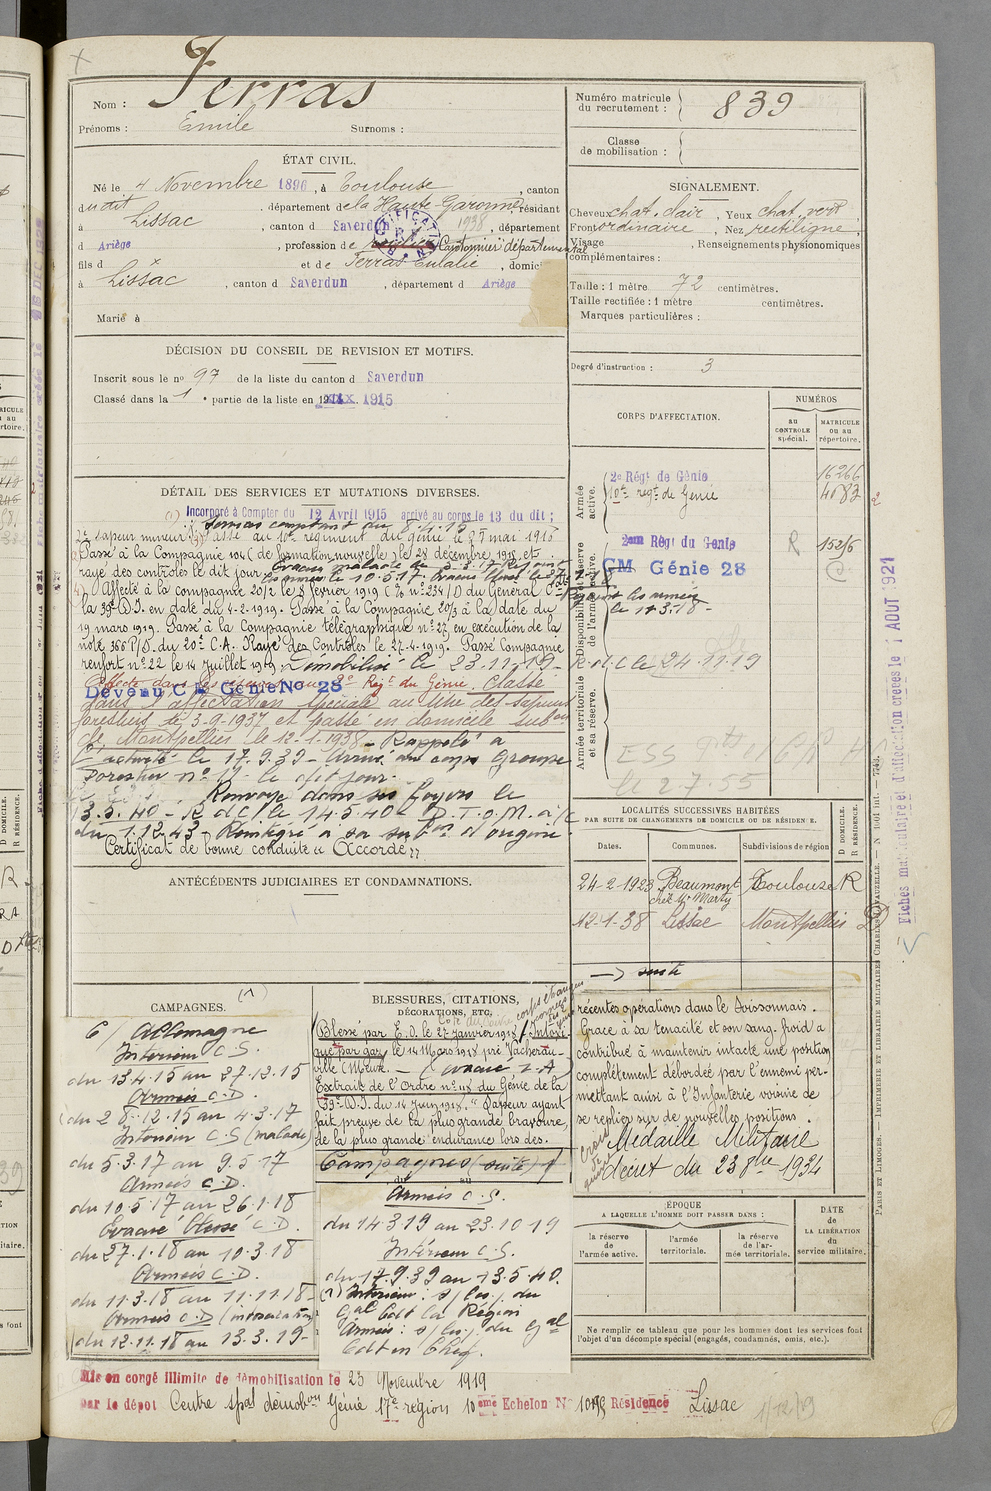 Nom : Ferras
Prénoms : Emile Surnoms :
Numéro matricule du recrutement : 839
Classe de mobilisation :
ÉTAT CIVIL.
Né le 4 Novembre 1896, à Toulouse, canton
dudit, département de la Haute-Garonne, résidant
à Lissac, canton d Saverdun 1938, département
d Ariège, profession de Cantonnier départemental
fils d x et de Ferras Eulalie, domicilié
à Lissac, canton d Saverdun, département d Ariège
Marié à
SIGNALEMENT.
Cheveux chat. clair, Yeux chat. vert
Front ordinaire, Nez rectiligne
Visage , Renseignements physionomiques
complémentaires :
Taille : 1 mètre 72 centimètres.
Taille rectifiée : 1 mètre centimètres.
Marques particulières :
Degré d'instruction : 3
DÉCISION DU CONSEIL DE REVISION ET MOTIFS.
Inscrit sous le n° 97 de la liste du canton d Saverdun
Classé dans la 1e partie de la liste en 1915
DÉTAIL DES SERVICES ET MUTATIONS DIVERSES.
Incorporé à Compter du 12 Avril 1915 arrivé au corps le 13 du dit ;
Services comptant du 8.4.15
2e sapeur mineur. Passé au 10e régiment du génie le 8 mai 1915
Passé à la Compagnie 10/4 (de formation nouvelle) le 28 décembre 1915 et
rayé des controles le dit jour. Evacué malade le 5-3-17 Rejoint
les armées le 10.5.17. Evacué blessé le 27-1-18
Affecté à la compagnie 20/2 le 8 février 1919 (N° 234/D) du Général Cdt
Rejoint les armées le 11-3-18-
la 39e D.I. en date du 4-2-1919. Passé à la Compagnie 20/3 à la date du
19 mars 1919. Passé à la Compagnie télégraphique n° 27 en exécution de la
note 366 P/D. du 20e C.A. Rayé des Contrôles le 27-4-1919. Passé Compagnie
renfort n° 22 le 14 Juillet 1919. Démobilisé le 23.11.19- R.d.C le 24.11.19
Affecté dans les réserves au 2e Régt du Génie. Classé
Devenu C M Génie No 28
dans l'affectation spéciale au titre des sapeurs
forestiers le 3-9-1937 et passé en domicile Subon
de Montpellier le 12-1-1938 - Rappelé à
l'activité le 17.9.39 - Arrivé au corps Groupe
Forestier n° 17 le dit jour.
Renvoyé dans ses foyers le
13.5.40 - R d C le 14.5.40 - D.T.O.M. à/c
du 1.12.43 - Réintégré à sa subon d'origine.
Certificat de bonne conduite "Accordé"
CORPS D'AFFECTATION.
NUMÉROS
au CONTROLE spécial.
MATRICULE ou au répertoire.
Armée active.
2e Régt de Génie 16266
10e régt de Génie 4083
Disponibilité et réserve de l'armée active.
2eme Régt du Genie R 15256
CM Génie 28
Armée territoriale et sa réserve.
le 2.7.55
LOCALITÉS SUCCESSIVES HABITÉES
PAR SUITE DE CHANGEMENTS DE DOMICILE OU DE RÉSIDENCE.
Dates. Communes. Subdivisions de région D DOMICILE. R RÉSIDENCE.
24-2-1923 Beaumont chez Mr Marty Toulouse R
12-1-38 Lissac Montpellier D
suite
ANTÉCÉDENTS JUDICIAIRES ET CONDAMNATIONS.
CAMPAGNES.
C/ Allemagne
Intérieur C.S.
du 13.4.15 au 27.12.15
Armées C.D.
du 28.12.15 au 4.3.17
Intérieur C.S (malade)
du 5.3.17 au 9.5.17
Armées C.D.
du 10.5.17 au 26.1.18
Evacué blessé C.D.
du 27.1.18 au 10.3.18
Armées C.D.
du 11.3.18 au 11.11.18
Armées C.D (intoxication)
du 12.11.18 au 13.3.19
BLESSURES, CITATIONS, DÉCORATIONS, ETC.
Blessé par E.O. le 27 janvier 1918 / Intoxi-
qué par gaz le 14 Mars 1918 pré Vacherau-
ville (Meuse. -
Extrait de l'Ordre n° 118 du Génie de la
39e D.I. du 14 Juin 1918. "Sapeur ayant
fait preuve de la plus grande bravoure,
de la plus grande endurance lors des
récentes opérations dans le Soissonnais.
Grâce à sa tenacité et son sang-froid a
contribué à maintenir intacte une position
complètement débordée par l'ennemi per-
mettant ainsi à l'Infanterie voisine de
se replier sur de nouvelles positions.
Croix de guerre
Médaille Militaire
décret du 23 8bre 1934
Campagnes (suite)
du au
Armées C.S.
du 14.3.19 au 23.10.19
Intérieur C.S.
du 17.9.39 au 13.5.40.
(1) Intérieur : s/ les/ du
Gal Cdt la Région
Armées : s/ les/ du Gal
Cdt en Chef.
ÉPOQUE
A LAQUELLE L'HOMME DOIT PASSER DANS :
la réserve de l'armée active.
l'armée territoriale.
la réserve de l'armée territoriale.
DATE de LA LIBÉRATION du service militaire.
Ne remplir ce tableau que pour les hommes dont les services font
l'objet d'un décompte spécial (engagés, condamnés, omis, etc.).
Mis en congé illimité de démobilisation le 23 Novembre 1919
par le dépôt Centre spal démobon Génie 17e région 10eme Echelon N° Résidence Lissac
Fiches matriculaire et d'affectation créées le 1 AOUT 1921
PARIS ET LIMOGES. — IMPRIMERIE ET LIBRAIRIE MILITAIRES CHARLES-LAVAUZELLE.